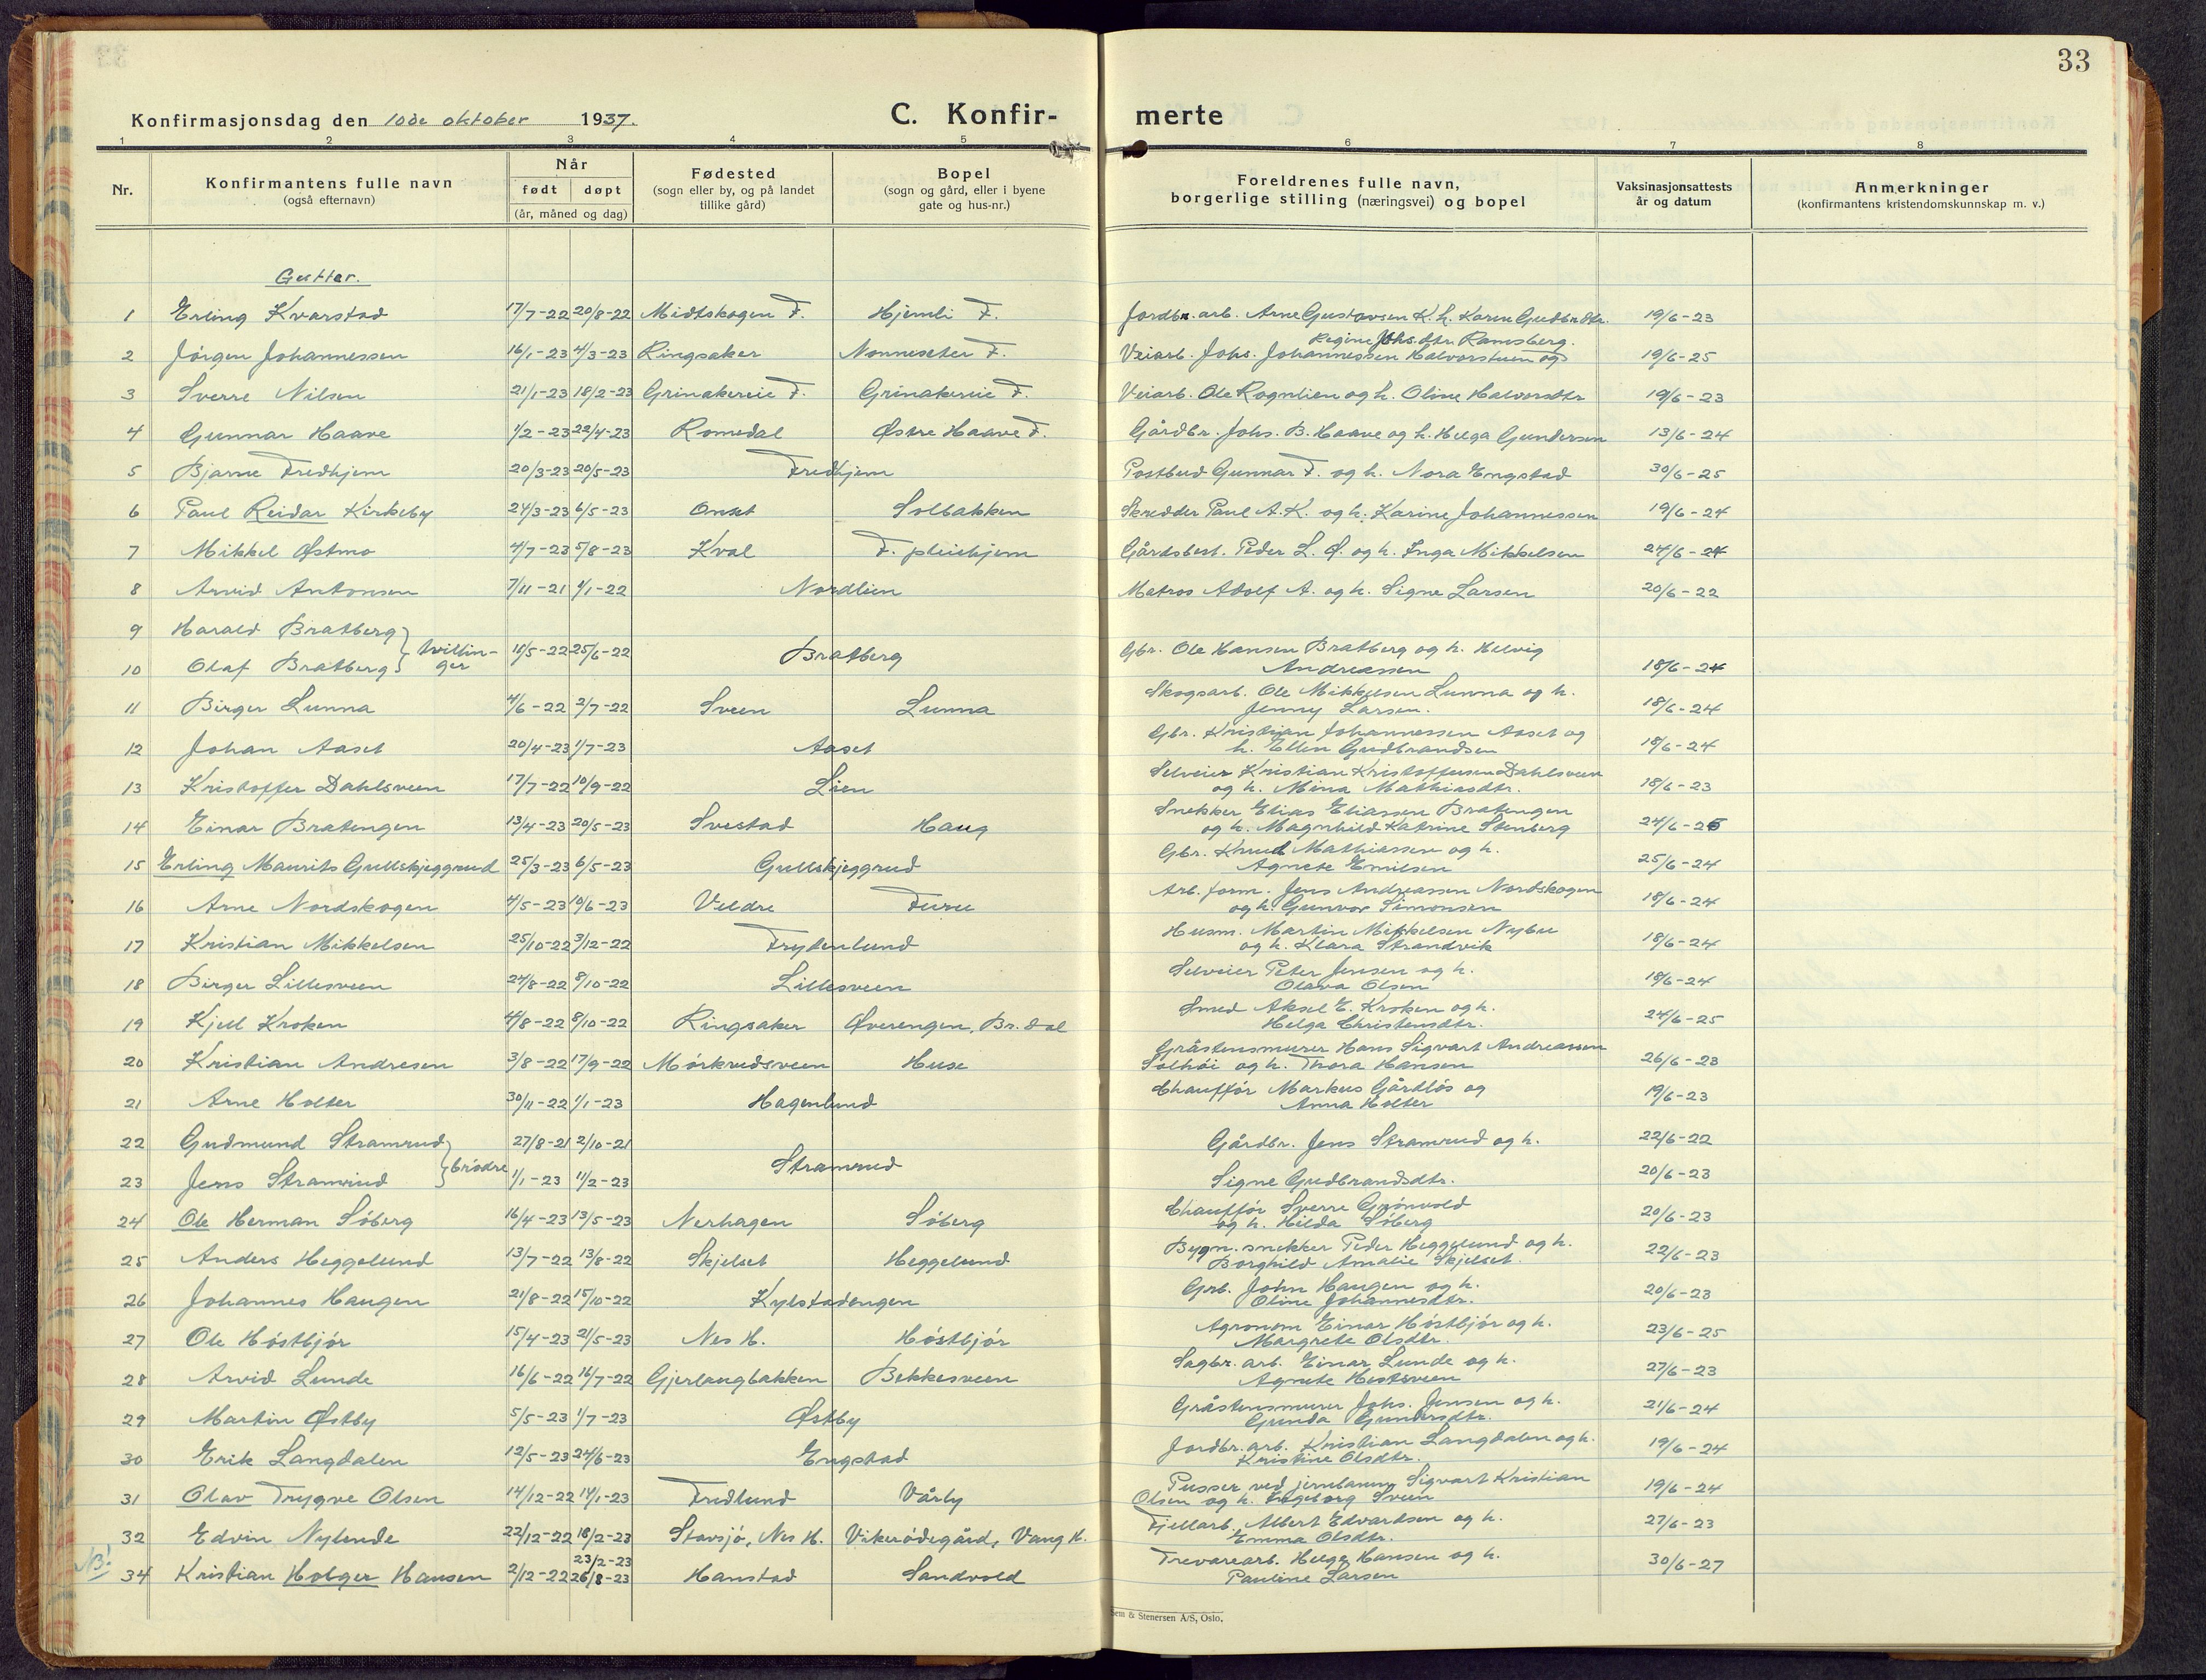 33
Konfirmasjonsdag den 10de oktober 1937.
C. Konfir-
merte
1 2 3 4 5 6 7 8
Nr. Konfirmantens fulle navn (også efternavn)
Når
født døpt
(år, måned og dag)
Fødested (sogn eller by, og på landet tillike gård)
Bopel (sogn og gård, eller i byene gate og hus-nr.)
Foreldrenes fulle navn, borgerlige stilling (næringsvei) og bopel
Vaksinasjonsattests år og datum
Anmerkninger (konfirmantens kristendomskunnskap m. v.)
Gutter.
1 Erling Kvarstad 17/7-22 20/8-22 Midtskogen F. Hjemli F. Jordbr. arb. Arne Gustavsen K. h. Karen Gudbrdtr. 19/6-23
Regine Johs.dtr. Ramsberg.
2 Jörgen Johannessen 16/1-23 4/3-23 Ringsaker Nonneseter F. Veiarb. Johs. Johannessen Halvorstuen og 19/6-25
3 Sverre Nilsen 21/1-23 18/2-23 Grinakereie F. Grinakereie F. Veiarb. Ole Rognlien og h. Oline Halvorsdtr 19/6-23
4 Gunnar Haave 1/2-23 22/4-23 Romedal Østre Haave F. Gårdbr. Johs. B. Haave og h. Helga Gundersen 13/6-24
5 Bjarne Fredhjem 20/3-23 20/5-23 Fredhjem Postbud Gunnar F. og h. Nora Engstad 30/6-25
6 Paul Reidar Kirkeby 24/3-23 6/5-23 Onset Solbakken Skredder Paul A. K. og h. Karine Johannessen 19/6-24
7 Mikkel Østmo 4/7-23 5/8-23 Kval F. pleiehjem Gårdsbest. Peder L. Ø. og h. Inga Mikkelsen 24/6-24
8 Arvid Antonsen 7/11-21 1/1-22 Nordlien Matros Adolf A. og h. Signe Larsen 20/6-22
9 Harald Bratberg
10 Olaf Bratberg } tvillinger 10/5-22 25/6-22 Bratberg Gbr. Ole Hansen Bratberg og h. Helvig
Andreassen 18/6-24
11 Birger Lunna 4/6-22 2/7-22 Sveen Lunna Skogsarb. Ole Mikkelsen Lunna og h.
Jenny Larsen. 18/6-24
12 Johan Aaset 20/4-23 1/7-23 Aaset Gbr. Kristian Johannessen Aaset og
h. Ellen Gudbrandsen 18/6-24
13 Kristoffer Dahlsveen 17/7-22 10/9-22 Lien Selveier Kristian Kristoffersen Dahlsveen
og h. Mina Mathiasdtr. 18/6-23
14 Einar Bratengen 13/4-23 20/5-23 Svestad Haug Snekker Elias Eliassen Bratengen
og h. Magnhild Katrine Stenberg 24/6-25
15 Erling Maurits Gullskjeggrud 25/3-23 6/5-23 Gullskjeggrud Gbr. Knud Mathiassen og h.
Agnete Emilsen 25/6-24
16 Arne Nordskogen 4/5-23 10/6-23 Veldre Furu Arb. form. Jens Andreassen Nordskogen
og h. Gunvor Simonsen 18/6-24
17 Kristian Mikkelsen 25/10-22 3/12-22 Frydenlund Husm. Martin Mikkelsen Nybu
og h. Klara Strandvik 18/6-24
18 Birger Lillesveen 24/8-22 8/10-22 Lillesveen Selveier Peter Jensen og h.
Olava Olsen 18/6-24
19 Kjell Kroken 4/8-22 8/10-22 Ringsaker Øverengen, Br. dal Smed Aksel E. Kroken og h.
Helga Christensdtr. 24/6-25
20 Kristian Andresen 3/8-22 17/9-22 Mörkvedsveen Huse Gråstensmurer Hans Sigvart Andreassen
Solhöi og h. Thora Hansen 26/6-23
21 Arne Holter 30/11-22 1/1-23 Hagenlund Chauffør Markus Gårdløs og
Anna Holter 19/6-23
22 Gudmund Stramrud 27/8-21 2/10-21 Gårdbr. Jens Stramrud og h. 22/6-22
} brödre Stramrud
23 Jens Stramrud 1/1-23 11/2-23 Signe Gudbrandsdtr. 20/6-23
24 Ole Herman Söberg 16/4-23 13/5-23 Nerhagen Söberg Chauffør Sverre Grönvold
og h. Hilda Söberg 20/6-23
25 Anders Heggelund 13/7-22 13/8-22 Skjelset Heggelund Bygn. snekker Peder Heggelund og h.
Borghild Amalie Skjelset. 22/6-23
26 Johannes Haugen 21/8-22 15/10-22 Kylstadengen Grb. John Haugen og h.
Oline Johannesdtr. 20/6-23
27 Ole Höstbjör 15/4-23 21/5-23 Nes H. Höstbjör Agronom Einar Höstbjör og h.
Margrete Olsdtr. 23/6-25
28 Arvid Lunde 16/6-22 16/7-22 Gjerlaugbakken Bekkesveen Sagbr. arb. Einar Lunde og h.
Agnete Hestsveen 27/6-23
29 Martin Østby 5/5-23 1/7-23 Østby Gråstensmurer Johs. Jensen og h.
Gunda Gunersdtr. 21/6-24
30 Erik Langdalen 12/5-23 24/6-23 Engstad Jordbr. arb. Kristian Langdalen og h.
Kristine Olsdtr. 19/6-24
31 Olav Trygve Olsen 14/12-22 14/1-23 Fredlund Vårby Pusser ved jernbanen Sigvart Kristian
Olsen og h. Ingeborg Sveen 19/6-24
32 Edvin Nylende 22/12-22 18/2-23 Stavsjö, Nes H. Vikerödegård, Vang H. Fjellarb. Albert Edvardsen og h.
Emma Olsdtr. 27/6-23
NB! 34 Kristian Holger Hansen 2/12-22 23/2-23 26/8-23 Hanstad Sandvold Trevarearb. Helge Hansen og h.
Pauline Larsen 30/6-27
Sem & Stenersen A/S, Oslo.